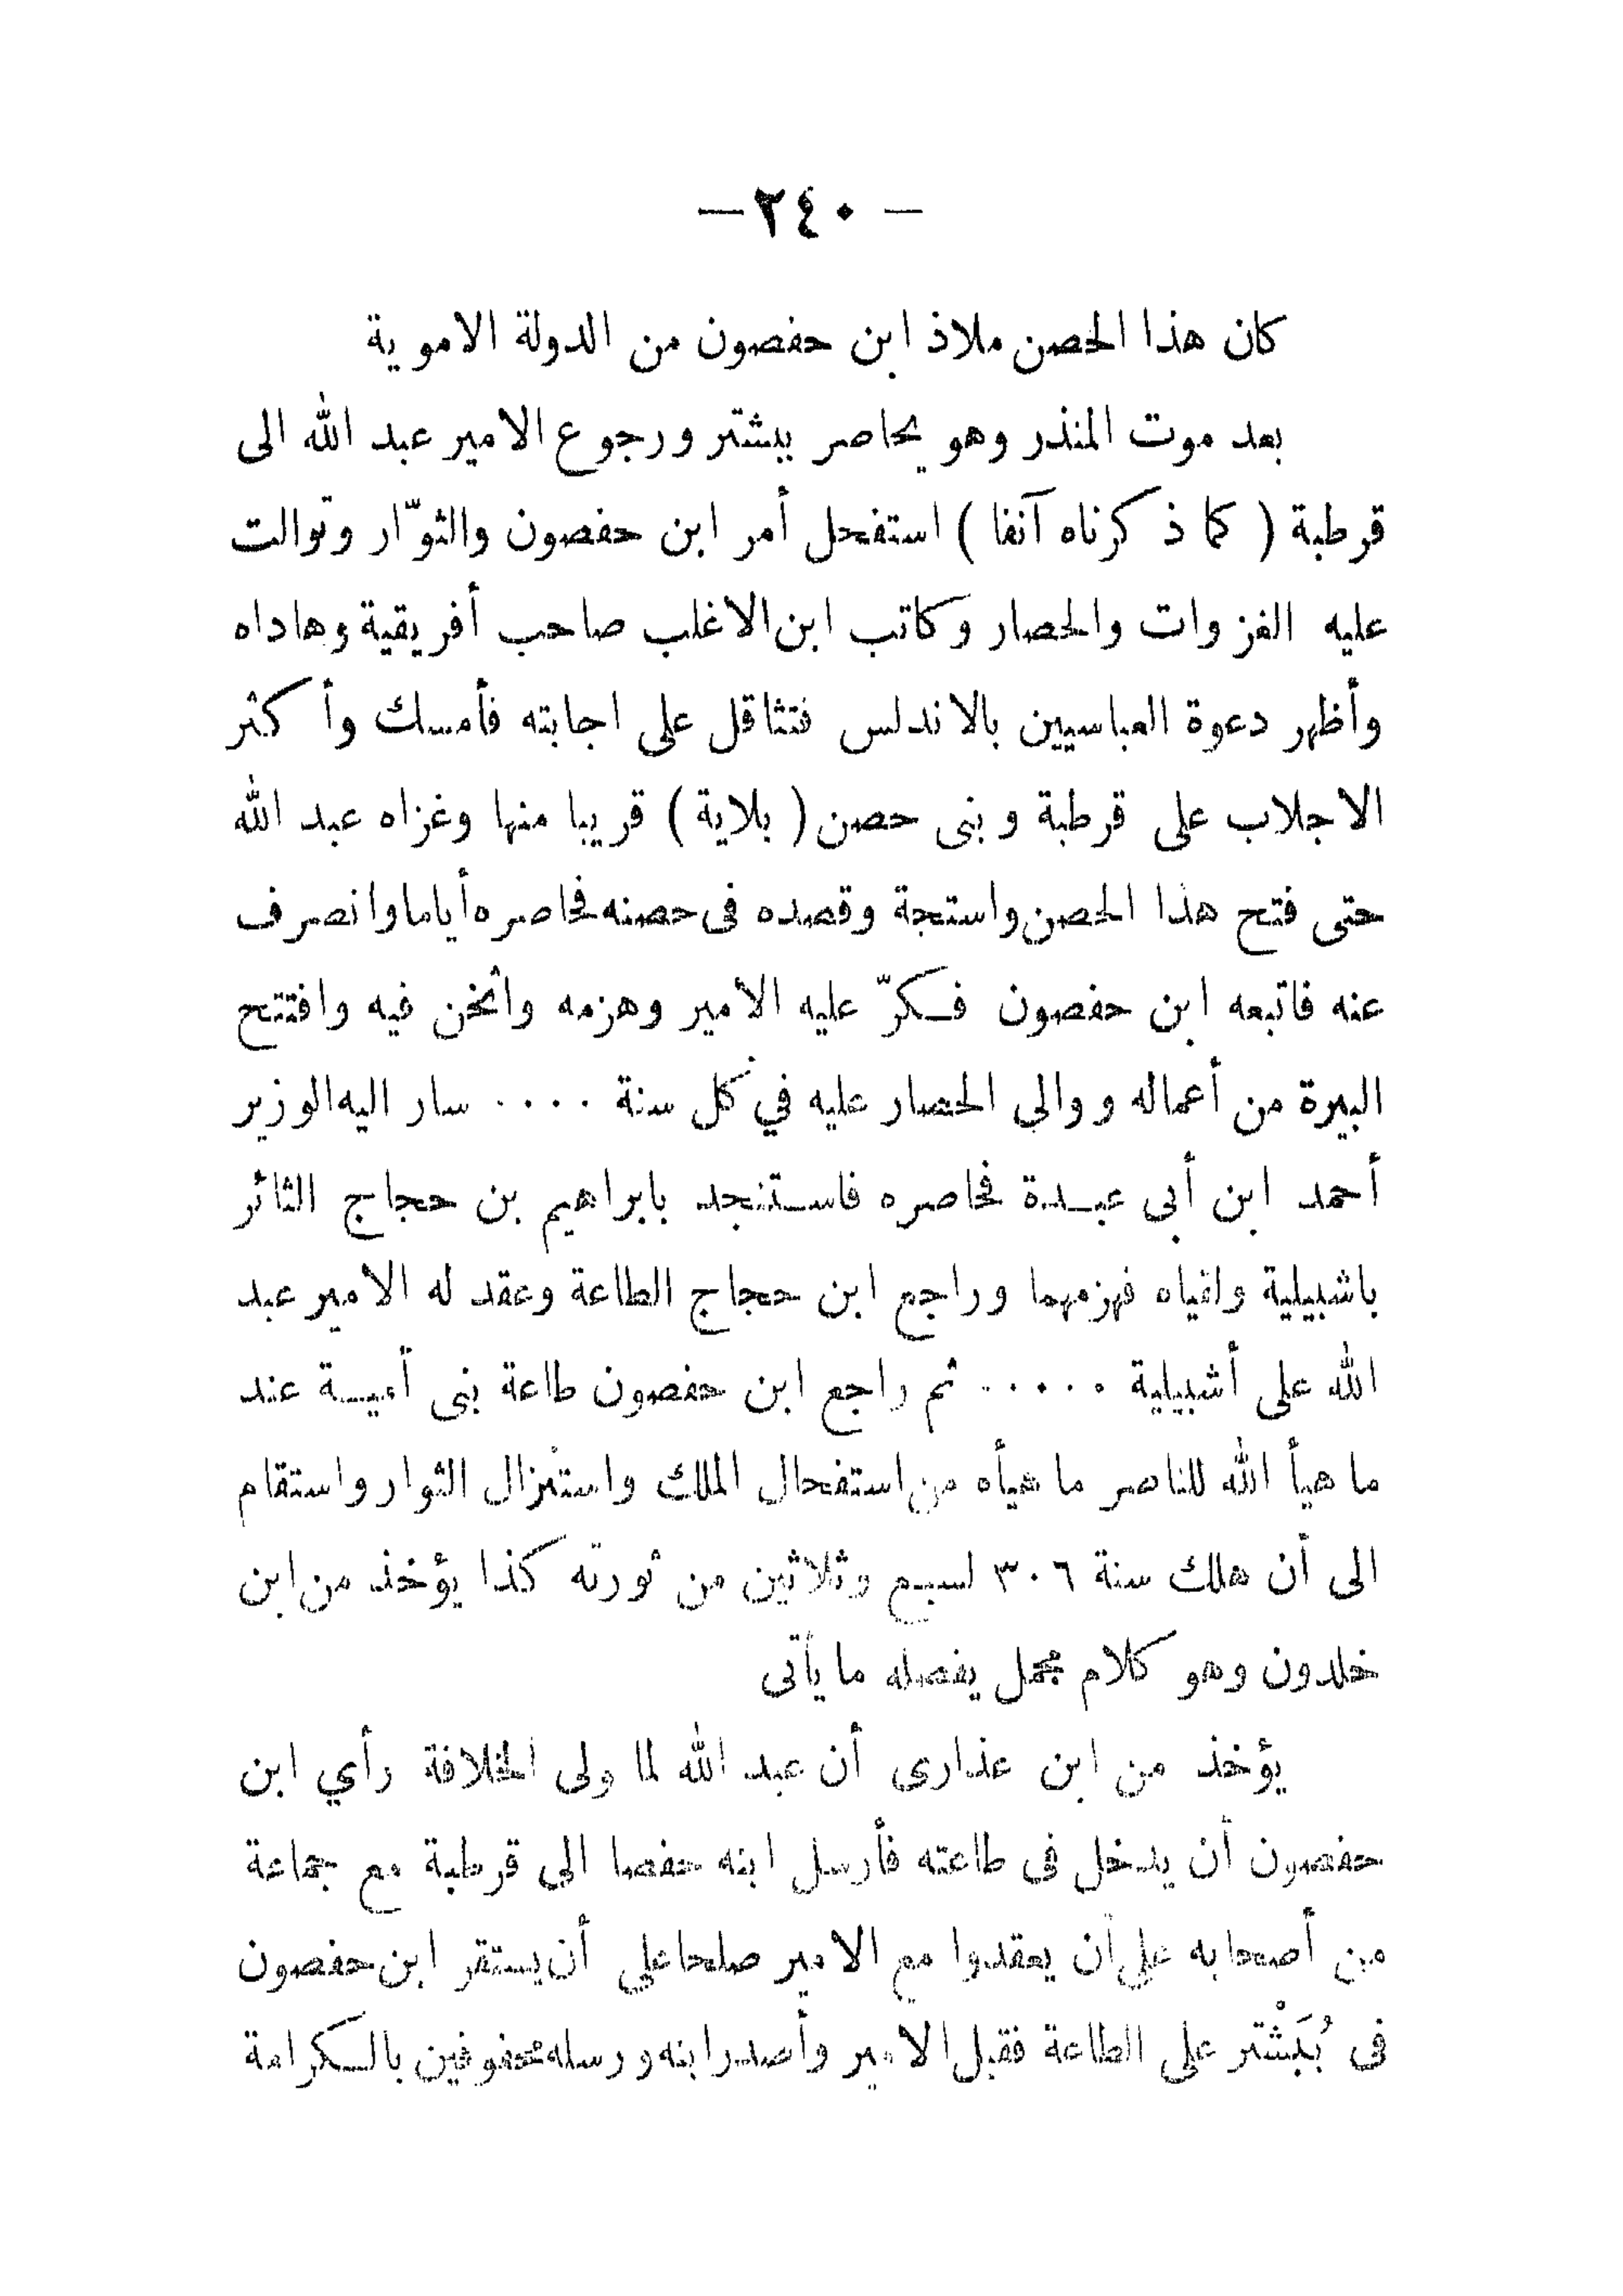 — ٢٤٠ —
كان هذا الحصن ملاذ ابن حفصون من الدولة الاموية
بعد موت المنذر وهو يحاصر ببشتر ورجوع الامير عبد الله الى
قرطبة ( كما ذكرناه آنفا ) استفحل أمر ابن حفصون والثوّار وتوالت
عليه الغزوات والحصار وكاتب ابن الاغلب صاحب أفريقية وهاداه
وأظهر دعوة العباسيين بالاندلس فتثاقل على اجابته فأمسك وأكثر
الاجلاب على قرطبة وبنى حصن ( بلاية ) قريبا منها وغزاه عبد الله
حتى فتح هذا الحصن واستجة وقصده فى حصنه فحاصره أياما وانصرف
عنه فاتبعه ابن حفصون فكرّ عليه الامير وهزمه وأثخن فيه وافتتح
البيرة من أعماله ووالى الحصار عليه في كل سنة ٠٠٠٠ سار اليه الوزير
أحمد ابن أبى عبدة فحاصره فاستنجد بابراهيم بن حجاج الثائر
باشبيلية ولقياه فهزمهما وراجع ابن حجاج الطاعة وعقد له الامير عبد
الله على أشبيلية ٠٠٠٠٠ ثم راجع ابن حفصون طاعة بنى أمية عند
ما هيأ الله للناصر ما هيأه من استفحال الملك واستنزال الثوار واستقام
الى أن هلك سنة ٣٠٦ لسبع وثلاثين من ثورته كذا يؤخذ من ابن
خلدون وهو كلام مجمل يفصله ما يأتى
يؤخذ من ابن عذارى أن عبد الله لما ولى الخلافة رأي ابن
حفصون أن يدخل فى طاعته فأرسل ابنه حفصا الى قرطبة مع جماعة
من أصحابه على أن يعقدوا مع الامير صلحا على أن يستقر ابن حفصون
فى بُبَشْتر على الطاعة فقبل الامير وأصدر ابنه ورسله محفوفين بالكرامة